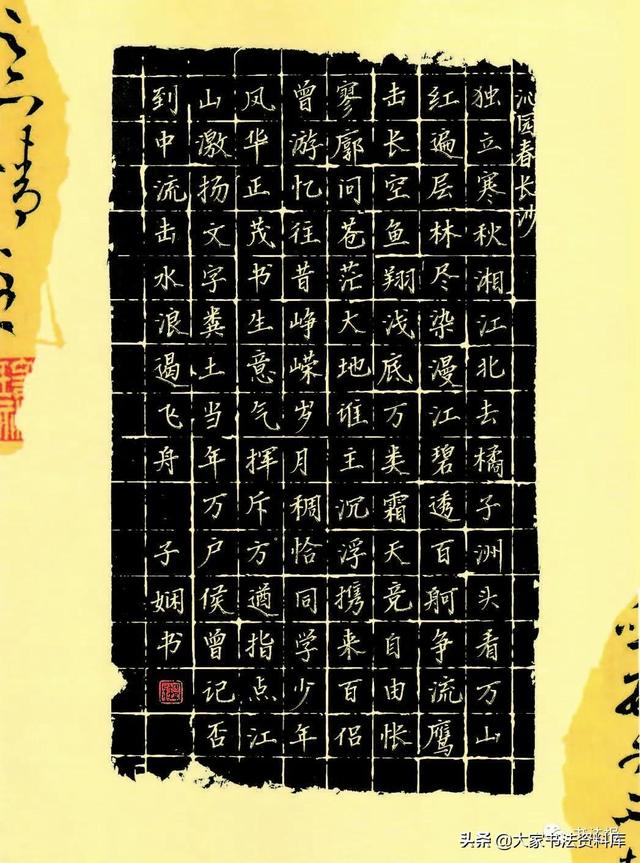 沁园春长沙
独立寒秋湘江北去橘子洲头看万山
红遍层林尽染漫江碧透百舸争流鹰
击长空鱼翔浅底万类霜天竞自由怅
寥廓问苍茫大地谁主沉浮携来百侣
曾游忆往昔峥嵘岁月稠恰同学少年
风华正茂书生意气挥斥方遒指点江
山激扬文字粪土当年万户侯曾记否
到中流击水浪遏飞舟 子娴书
头条 @大家书法资料库